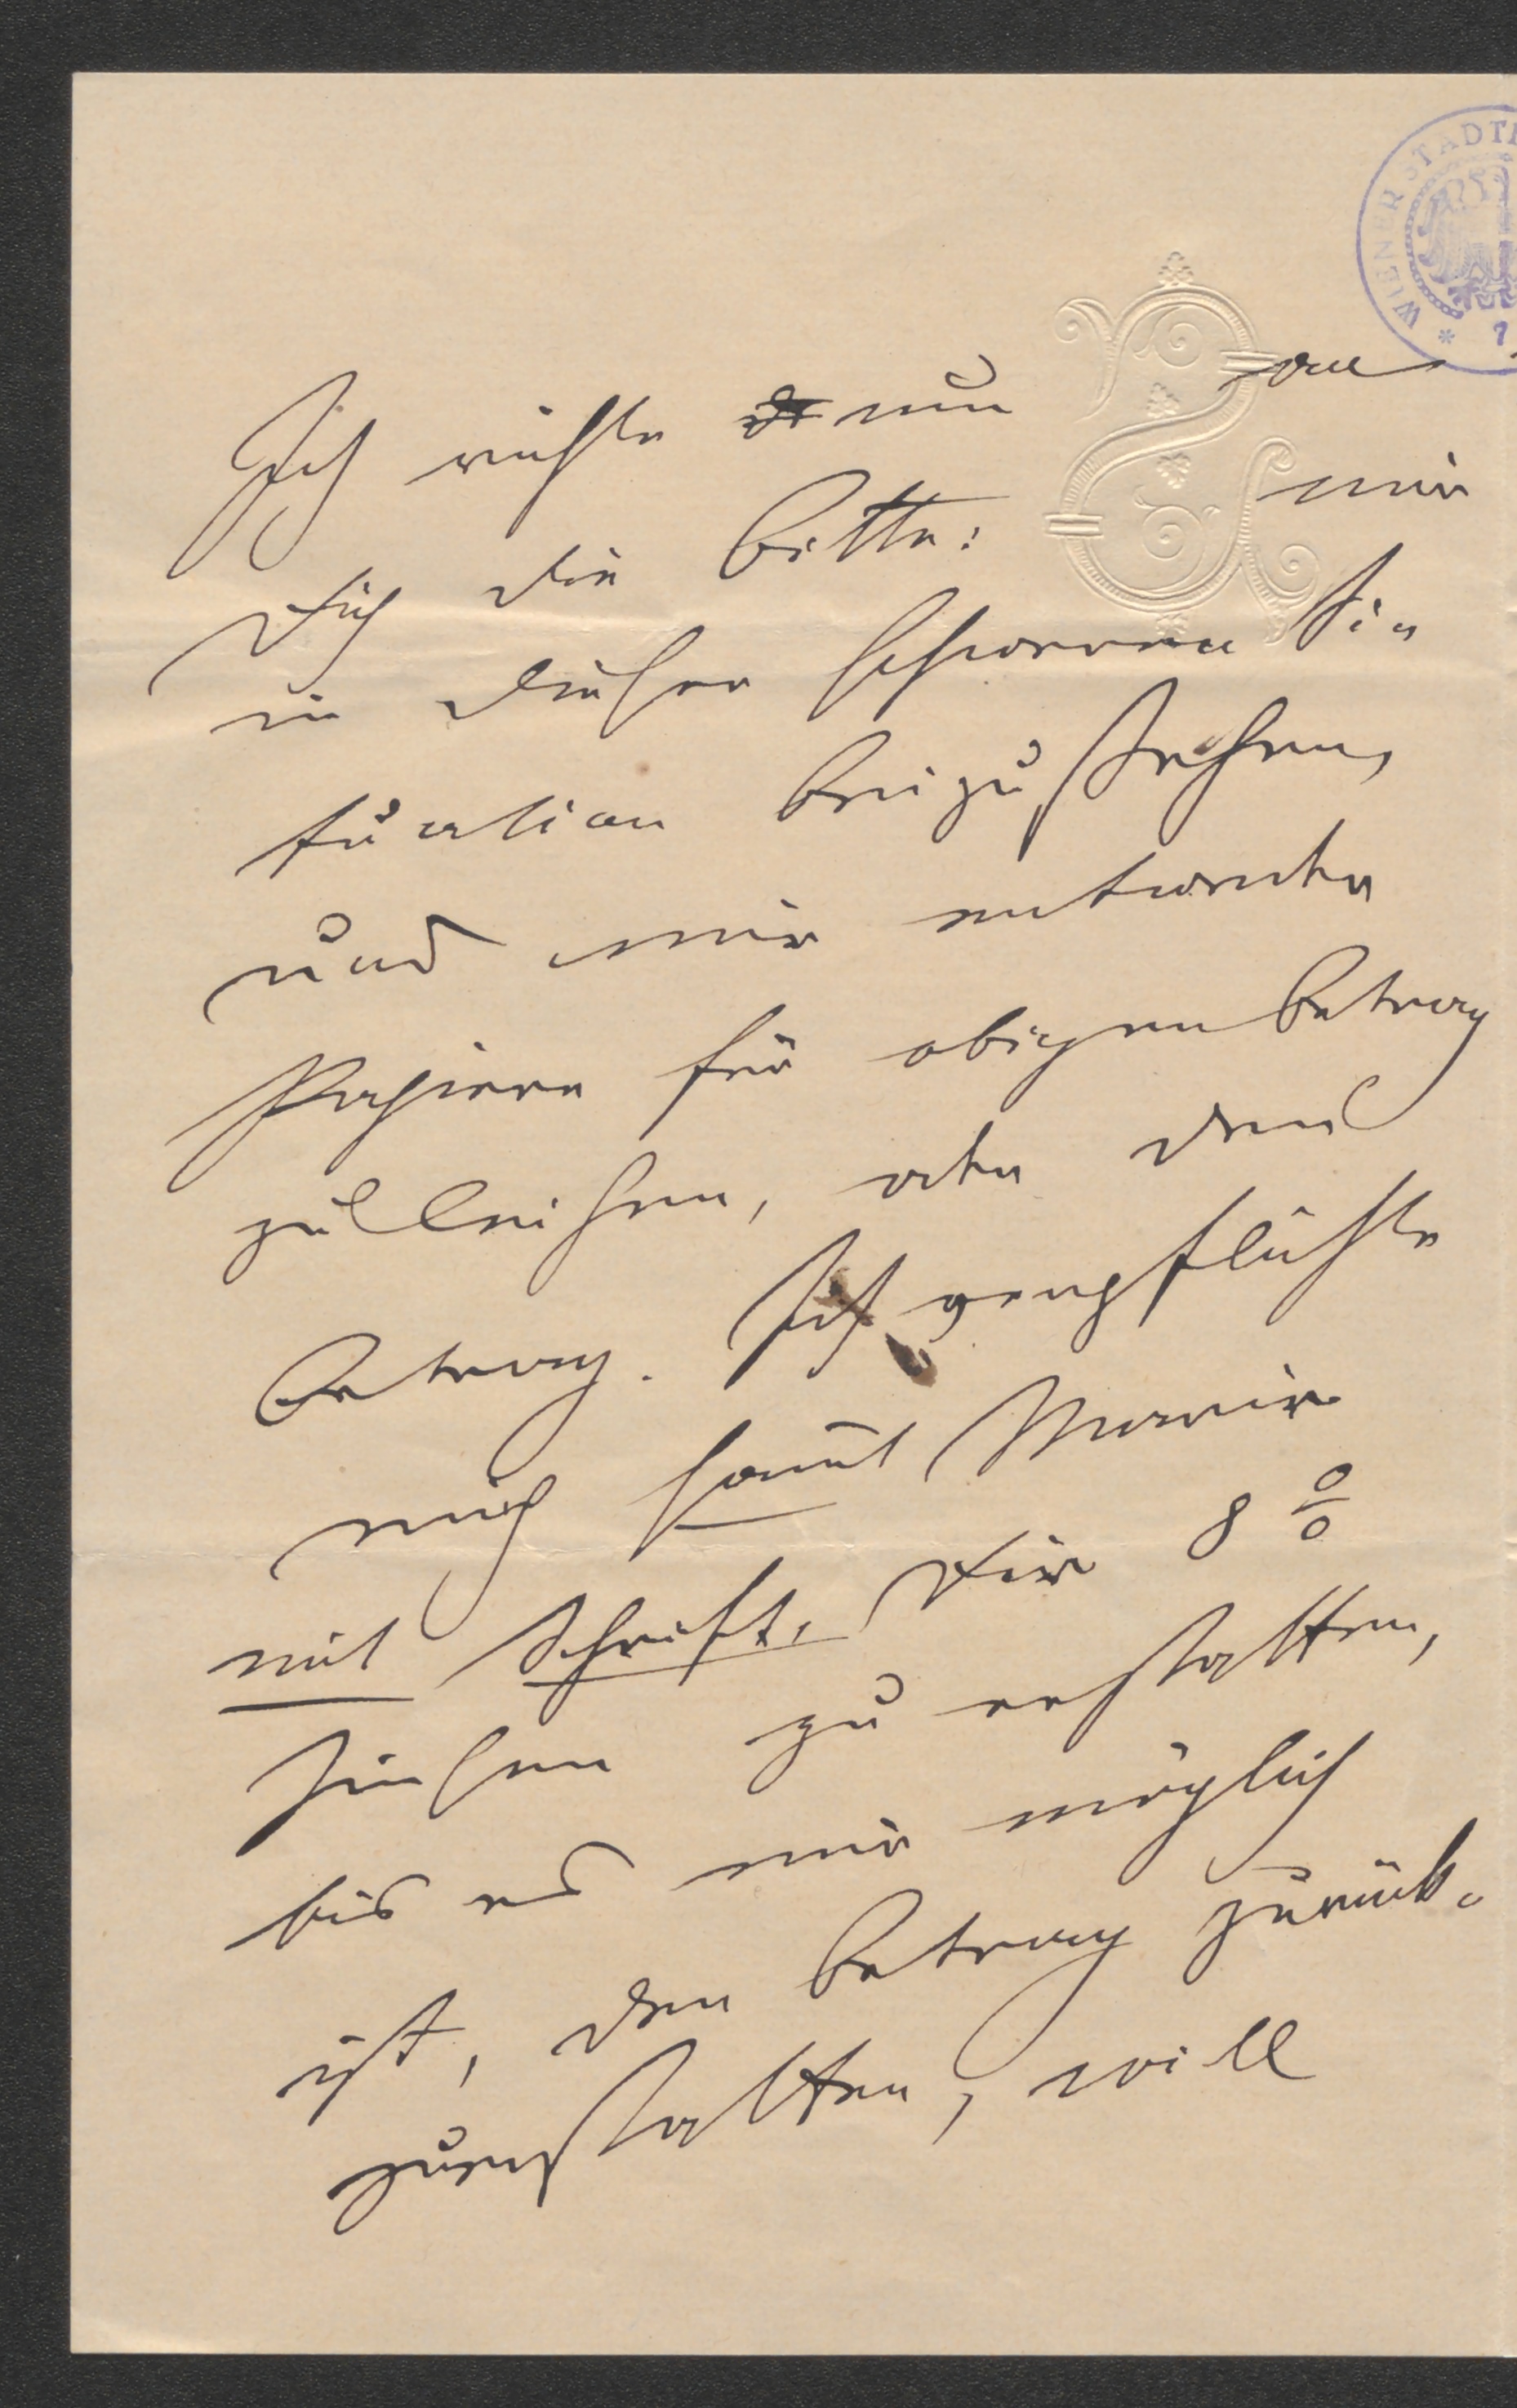 WIENER STADT
Ich richte nun an
Dich die Bitte: mir
in dieser schweren Si-
tuation beizustehen,
und mir entweder
Papiere für obigen Betrag
zu leihen, oder den
Betrag. Ich verpflichte
mich sammt Marie
mit Schrift, Dir 8 %
Zinsen zu erstatten,
bis es mir möglich
ist, den Betrag zurück-
zuerstatten, will